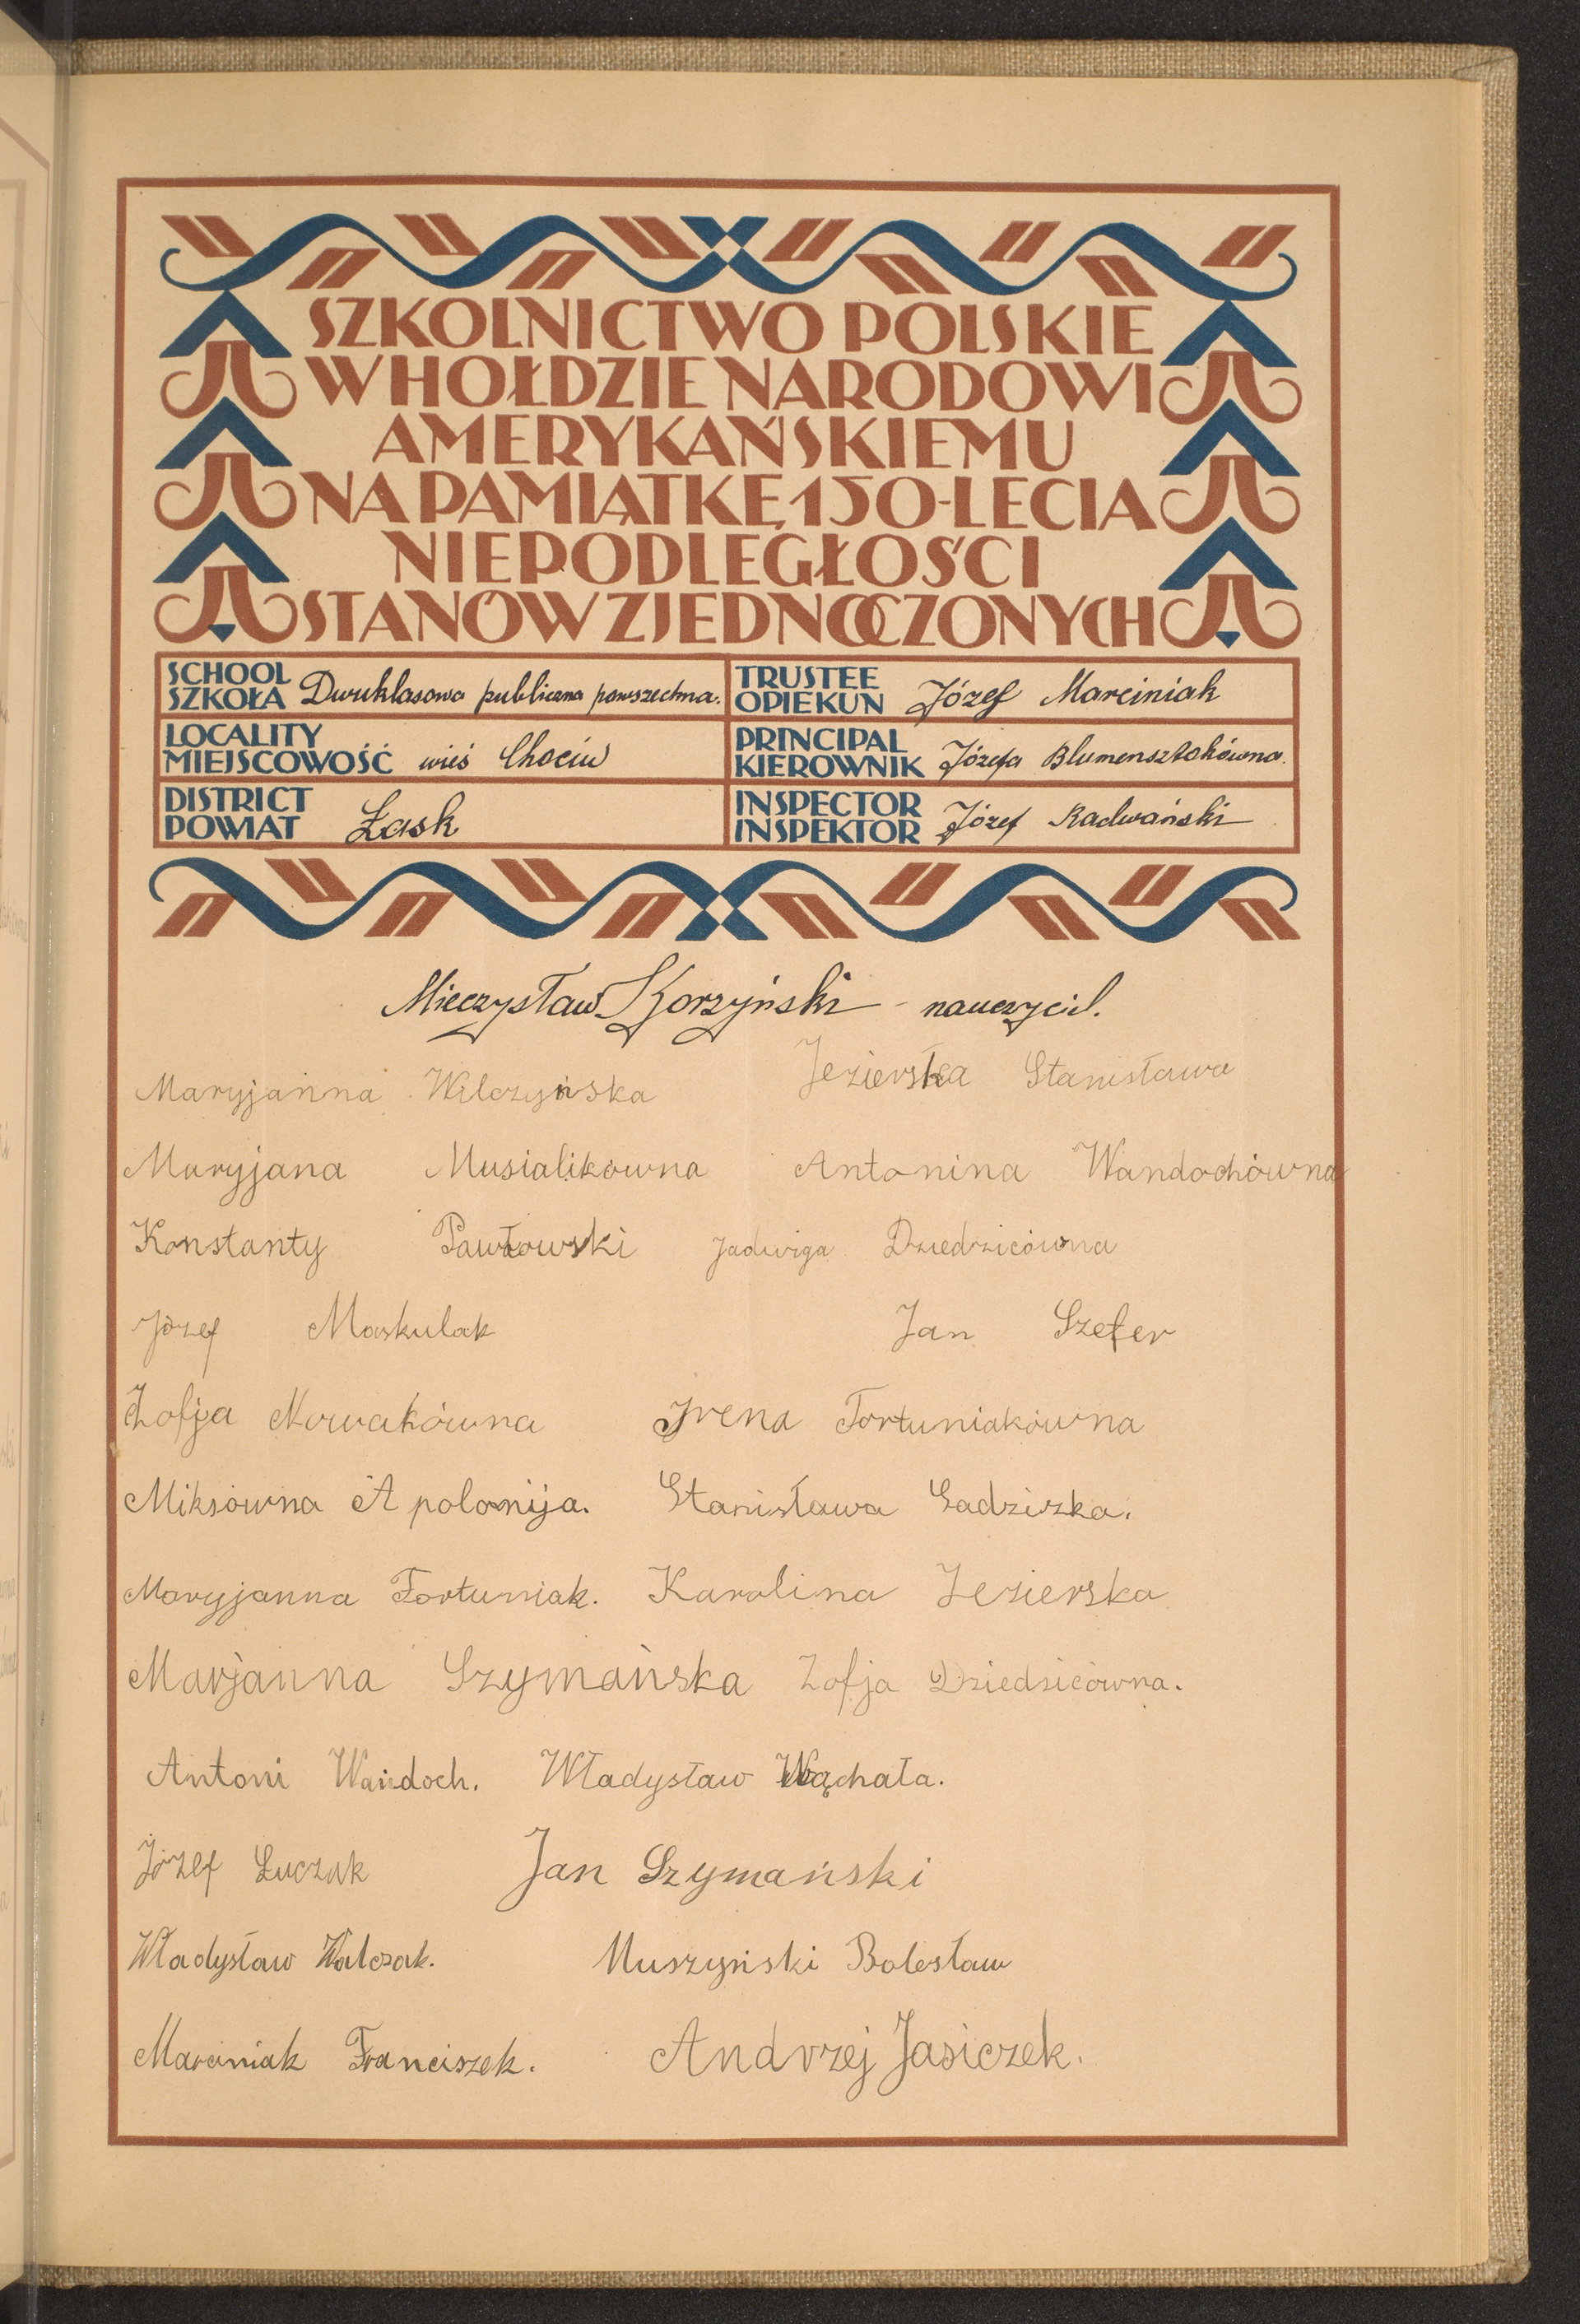 SZKOLNICTWO POLSKIE
W HOŁDZIE NARODOWI
AMERYKAŃSKIEMU
NA PAMIĄTKĘ 150-LECIA
NIEPODLEGŁOŚCI
STANÓW ZJEDNOCZONYCH
SCHOOL
SZKOŁA Dwuklasowa publiczna powszechna.
TRUSTEE
OPIEKUN Józef Marciniak
LOCALITY
MIEJSCOWOŚĆ wieś Chociw
PRINCIPAL
KIEROWNIK Józefa Blumensztokówna.
DISTRICT
POWIAT Łask
INSPECTOR
INSPEKTOR Józef Radwański
Mieczysław Korzyński - nauczyciel.
Maryjanna Wilczyńska Jezierska Stanisława
Maryjana Musialikówna Antonina Wandochówna
Konstanty Pawłowski Jadwiga Dziedzicówna
Józef Maskulak Jan Szefer
Zofja Nowakówna Irena Fortuniakówna
Miksówna Apolonija. Stanisława Sadziszka.
Maryjanna Fortuniak. Karolina Jezierska
Marjanna Szymańska Zofja Dziedzicówna.
Antoni Wandoch. Władysław Wąchała.
Józef Łuczak Jan Szymański
Władysław Walczak. Muszyński Bolesław
Marciniak Franciszek. Andrzej Jasiczek.